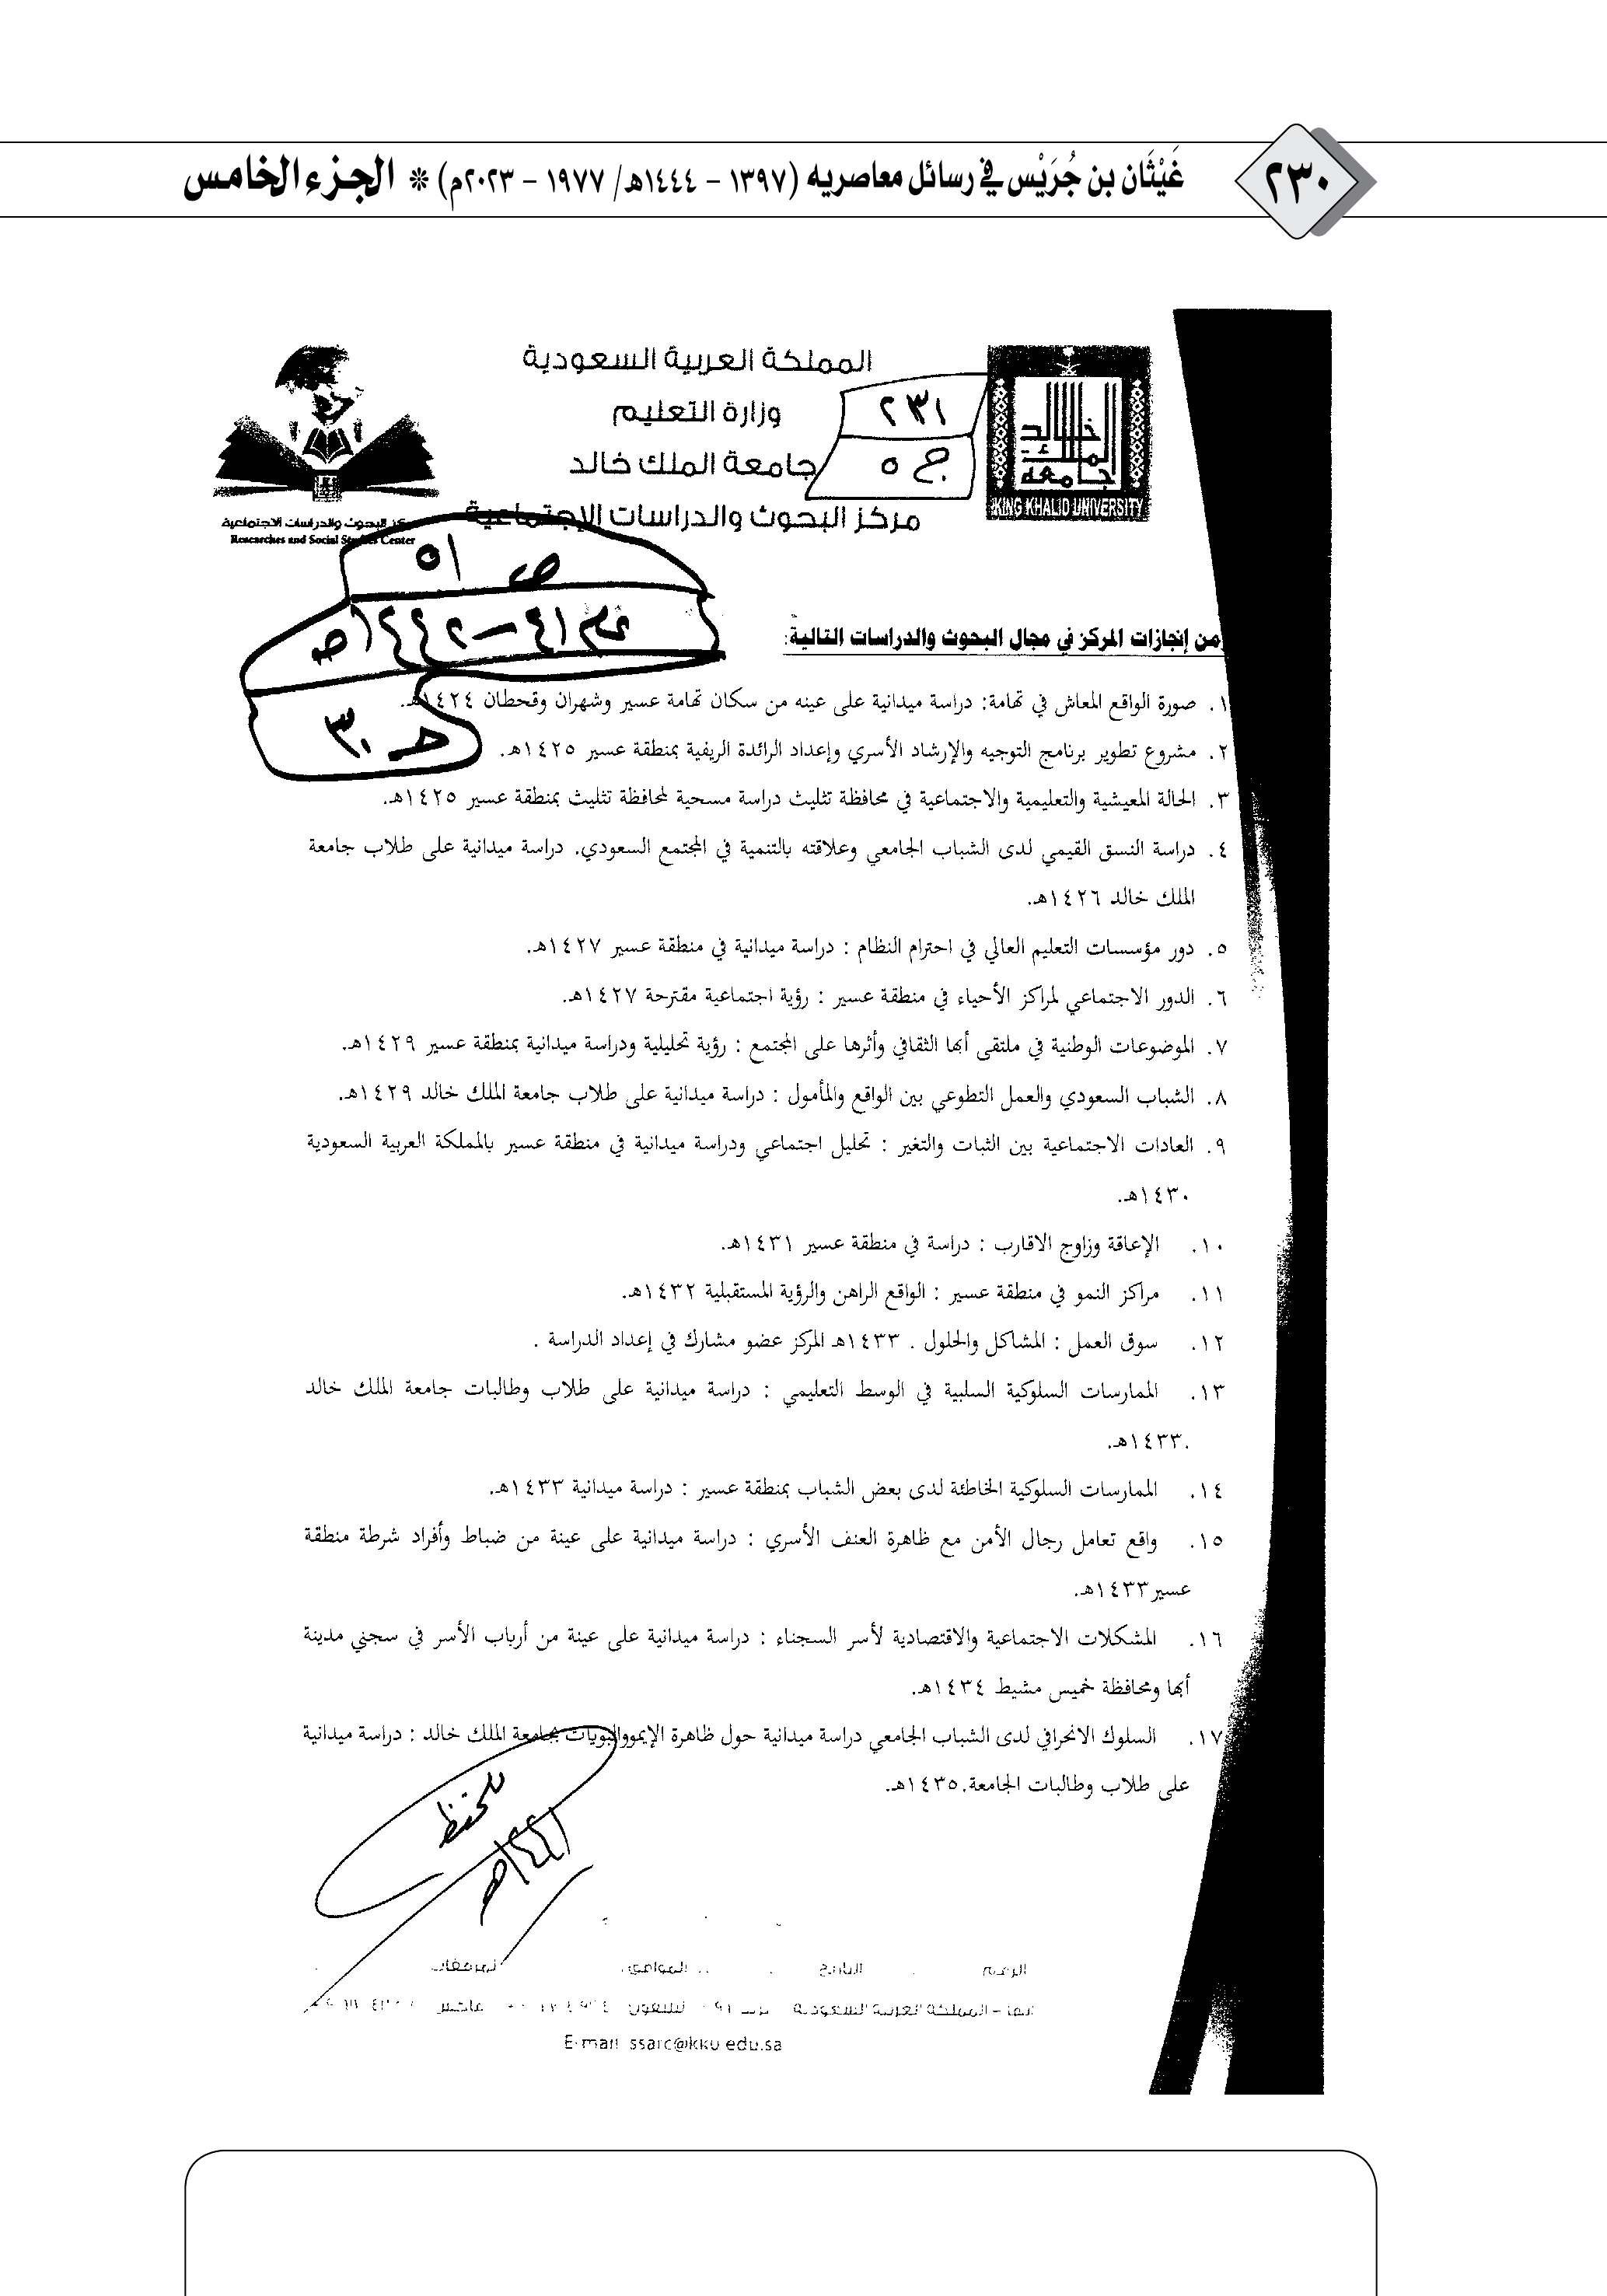 ٢٣٠
غَيْثَان بن جُرَيْس في رسائل معاصريه (١٣٩٧ – ١٤٤٤هـ/ ١٩٧٧ – ٢٠٢٣م) * الجزء الخامس
المملكة العربية السعودية
وزارة التعليم
جامعة الملك خالد
مركز البحوث والدراسات الإجتماعية
٢٣١
ج ٥
جامعة الملك خالد
KING KHALID UNIVERSITY
مركز البحوث والدراسات الاجتماعية
Researches and Social Studies Center
من إنجازات المركز في مجال البحوث والدراسات التالية:
١. صورة الواقع المعاش في تهامة: دراسة ميدانية على عينه من سكان تهامة عسير وشهران وقحطان ١٤٢٤هـ.
٢. مشروع تطوير برنامج التوجيه والإرشاد الأسري وإعداد الرائدة الريفية بمنطقة عسير ١٤٢٥هـ.
٣. الحالة المعيشية والتعليمية والاجتماعية في محافظة تثليث دراسة مسحية لمحافظة تثليث بمنطقة عسير ١٤٢٥هـ.
٤. دراسة النسق القيمي لدى الشباب الجامعي وعلاقته بالتنمية في المجتمع السعودي. دراسة ميدانية على طلاب جامعة
الملك خالد ١٤٢٦هـ.
٥. دور مؤسسات التعليم العالي في احترام النظام : دراسة ميدانية في منطقة عسير ١٤٢٧هـ.
٦. الدور الاجتماعي لمراكز الأحياء في منطقة عسير : رؤية اجتماعية مقترحة ١٤٢٧هـ.
٧. الموضوعات الوطنية في ملتقى أبها الثقافي وأثرها على المجتمع : رؤية تحليلية ودراسة ميدانية بمنطقة عسير ١٤٢٩هـ.
٨. الشباب السعودي والعمل التطوعي بين الواقع والمأمول : دراسة ميدانية على طلاب جامعة الملك خالد ١٤٢٩هـ.
٩. العادات الاجتماعية بين الثبات والتغير : تحليل اجتماعي ودراسة ميدانية في منطقة عسير بالمملكة العربية السعودية
١٤٣٠هـ.
١٠. الإعاقة وزاوج الاقارب : دراسة في منطقة عسير ١٤٣١هـ.
١١. مراكز النمو في منطقة عسير : الواقع الراهن والرؤية المستقبلية ١٤٣٢هـ.
١٢. سوق العمل : المشاكل والحلول . ١٤٣٣هـ المركز عضو مشارك في إعداد الدراسة .
١٣. الممارسات السلوكية السلبية في الوسط التعليمي : دراسة ميدانية على طلاب وطالبات جامعة الملك خالد
.١٤٣٣هـ.
١٤. الممارسات السلوكية الخاطئة لدى بعض الشباب بمنطقة عسير : دراسة ميدانية ١٤٣٣هـ.
١٥. واقع تعامل رجال الأمن مع ظاهرة العنف الأسري : دراسة ميدانية على عينة من ضباط وأفراد شرطة منطقة
عسير١٤٣٣هـ.
١٦. المشكلات الاجتماعية والاقتصادية لأسر السجناء : دراسة ميدانية على عينة من أرباب الأسر في سجني مدينة
أبها ومحافظة خميس مشيط ١٤٣٤هـ.
١٧. السلوك الانحرافي لدى الشباب الجامعي دراسة ميدانية حول ظاهرة الإيمووالبويات بجامعة الملك خالد : دراسة ميدانية
على طلاب وطالبات الجامعة.١٤٣٥هـ.
للحفظ
التاريخ
E-mail ssarc@kku edu.sa